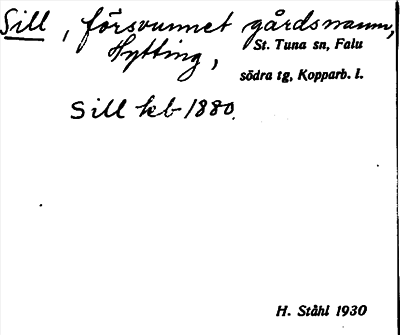 Sill, försvunnet gårdsnamn,
Hytting, St. Tuna sn, Falu
södra tg, Kopparb. l.
Sill kb 1880.
H. Ståhl 1930